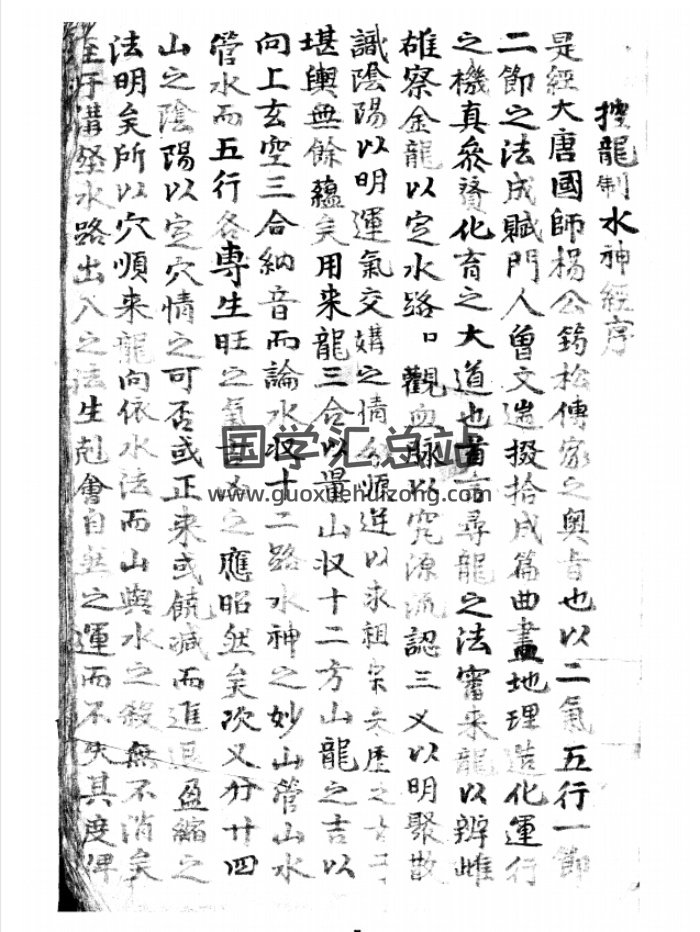 搜龍制水神經序
是經大唐國師楊公筠松傳家之奧旨也以二氣五行一節
二節之法成賦門人曾文遄掇拾成篇曲盡地理造化運行
之機真參贊化育之大道也首言尋龍之法審來龍以辨雌
雄察金龍以定水路口觀血脉以究源流認三义以明聚散
識陰陽以明運氣交媾之情分順逆以求祖宗
堪輿無餘蘊矣用来龍三合以量山収十二方山龍之吉以
向上玄空三合納音而論水収十二路水神之妙山管山水
管水而五行各專生旺之氣吉凶之應昭然矣次又分廿四
山之陰陽以定穴情之可否或正来或饒减而進退盈縮之
法明矣所以穴順来龍向依水法而山與水之殺無不消矣
至于溝壑水路出入之法生剋會自然之運而不失其度俾
国学汇总站
www.guoxuehuizong.com